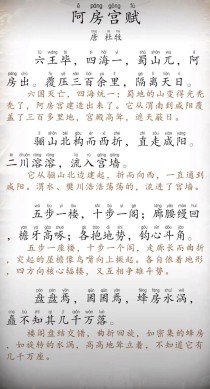 ē páng gōng fù
阿房宫赋
唐 杜牧
六王毕，四海一，蜀山兀，阿
房出。覆压三百余里，隔离天日。
六国灭亡，四海统一；蜀地的山变得光秃
秃了，阿房宫建造出来了。它从渭南到咸阳覆
盖了三百多里地，宫殿高耸，遮天蔽日。
骊山北构而西折，直走咸阳。
二川溶溶，流入宫墙。
它从骊山北边建起，折而向西，一直通到
咸阳。渭水、樊川浩浩荡荡的，流进了宫墙。
五步一楼，十步一阁；廊腰缦回
，檐牙高啄；各抱地势，钩心斗角。
五步一座楼，十步一个阁，走廊长而曲折
，突起的屋檐像鸟嘴向上撅起。各自依着地形
，四方向核心辐辏，又互相争雄斗势。
盘盘焉，囷囷焉，蜂房水涡，
矗不知其几千万落。
楼阁盘结交错，曲折回旋，如密集的蜂房
，如旋转的水涡，高高地耸立着，不知道它有
几千万座。